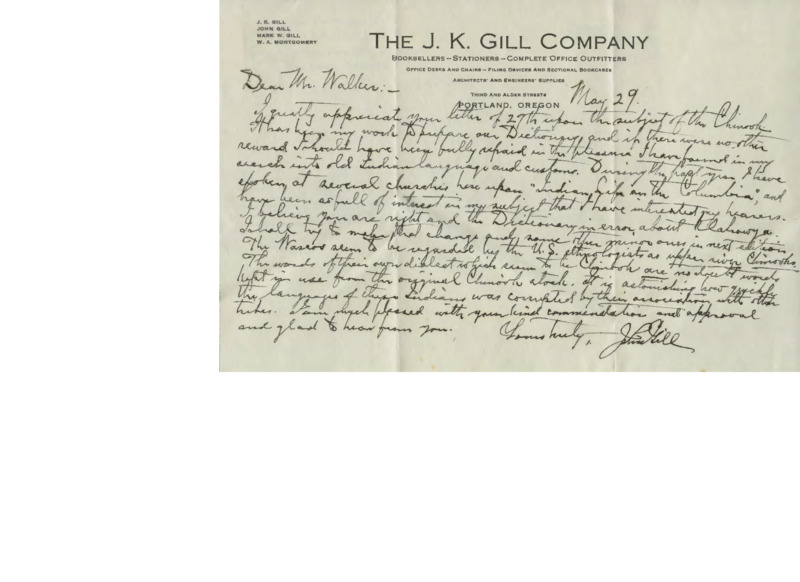 J. K. GILL
JOHN GILL
MARK W. GILL
W. A. MONTGOMERY
THE J. K. GILL COMPANY
BOOKSELLERS – STATIONERS – COMPLETE OFFICE OUTFITTERS
OFFICE DESKS AND CHAIRS – FILING DEVICES AND SECTIONAL BOOKCASES
ARCHITECTS' AND ENGINEERS' SUPPLIES
THIRD AND ALDER STREETS
PORTLAND, OREGON
May 29.
Dear Mr. Walker:–
I greatly appreciate your letter of 27th upon the subject of the Chinook
It has been my work to prepare our Dictionary, and if there were no other
reward I should have been fully repaid in the pleasure I have found in my
search into old Indian language and customs. During the past year I have
spoken at several churches here upon "Indian Life on the Columbia", and
have been so full of interest in my subject that I have interested my hearers.
I believe you are right and the Dictionary in error about Klahowya.
I shall try to make that change and some other minor ones in next edition.
The Wascos seem to be regarded by the U.S. ethnologists as upper river Chinooks.
The words of their own dialect which seem to be Chinook are no doubt words
kept in use from the original Chinook stock. It is astonishing how quickly
the language of these Indians was corrupted by their association with other
tribes. I am much pleased with your kind commendation and approval
and glad to hear from you.
Yours truly,
John Gill